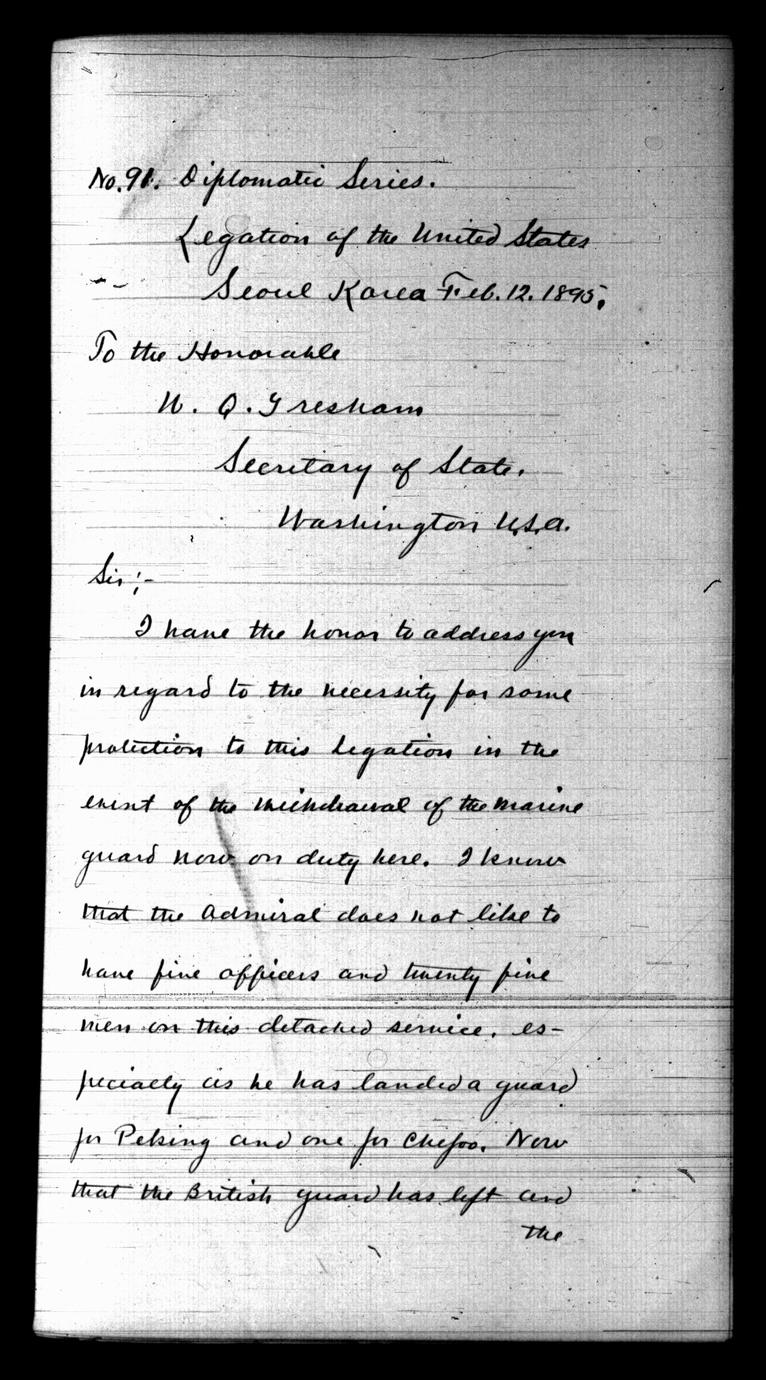 No. 91. Diplomatic Series.
Legation of the United States
Seoul Korea Feb. 12. 1895.
To the Honorable
W. Q. Gresham
Secretary of State.
Washington U.S.A.
Sir;-
I have the honor to address you
in regard to the necessity for some
protection to this legation in the
event of the withdrawal of the marine
guard now on duty here. I know
that the Admiral does not like to
have five officers and twenty five
men on this detached service, es-
pecially as he has landed a guard
for Peking and one for Chefoo. Now
that the British guard has left and
the